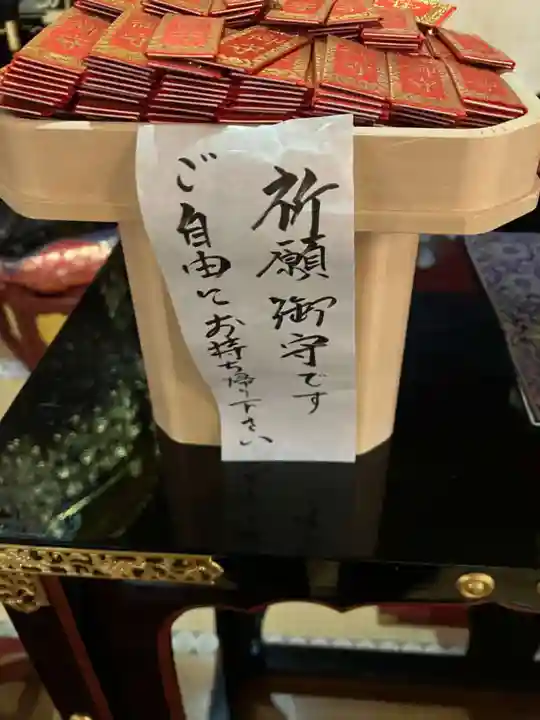 祈願御守です
ご自由にお持ち帰り下さい